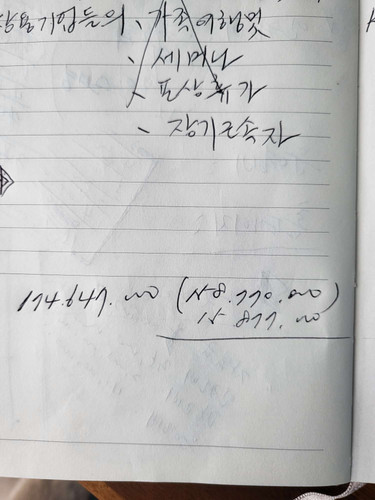 기업들의、가족여행및
、세미나
、포상휴가
、장기근속자
174.647.000 (158.770.000)
15.877.000